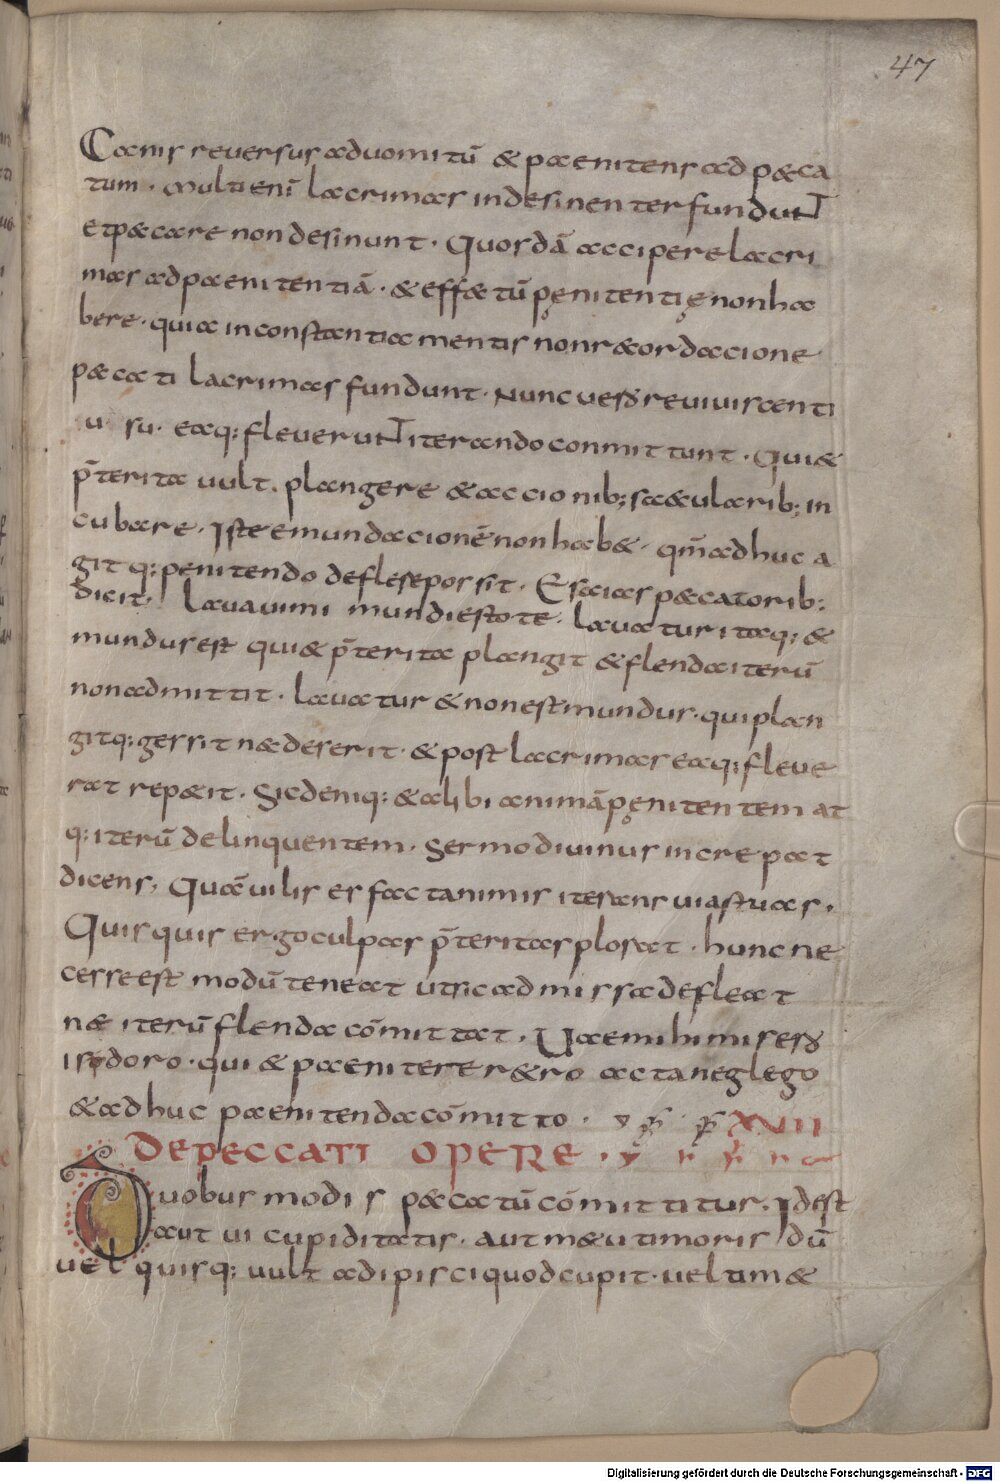 47
Canis reuersus aduomitū & paenitens ad pęca
tum. Multi enī lacrimas indesinenter fundunt
et pęcare non desinunt. Quosdā accipere lacri
mas ad paenitentiā. & effectū pęnitentię non ha
bere. quia inconstantia mentis nonr&ordacione
pęcati lacrimas fundunt. Nunc uero reuiuiscenti
u su. eaq; fleuerunt iterando conmittunt. Qui &
p̄terita uult. plangere & accionib; saecularib; in
cubare. Iste emundacionē non hab&. qm̄ adhuc a
git q; penitendo defleseposs̄it. Esaias pęcatorib;
dicit. Lauamini mundi estote. Lauatur itaq; &
mundus est qui & p̄terita plangit & flenda iterū
non admittit. Lauatur & non est mundus. qui plan
git q; gessit nęc deserit. & post lacrimas eaq; fleue
rat rep&it. Sic deniq; & alibi animā pęnitentem at
q; iterū delinquentem. Sermo diuinus increpat
dicens. Quā uilis es facta nimis iterans uias tuas.
Quisquis ergo culpas p̄teritas plorat. hunc ne
cesse est modū teneat ut sic admissa defleat
nę iterū flenda cōmittat. Uae mihi misero
isydoro. qui & paenitere r&ro acta neglego
& adhuc paenitenda cōmitto. XVII
DE PECCATI OPERE.
Duobus modis pęcatū cōmittitur. Idest
aut ui cupiditatis. aut męu timoris dū
uel quisq; uult adipisci quod cupit. uel tim&
Digitalisierung gefördert durch die Deutsche Forschungsgemeinschaft - DFG